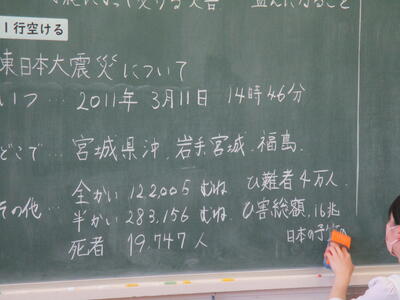 1行空ける
東日本大震災について
いつ… 2011年 3月11日 14時46分
どこで… 宮城県沖.岩手宮城.福島.
その他… 全かい 122,005 むね ひ難者4万人.
半かい 283,156 むね. ひ害総額.16兆
死者 19.747人 日本の予算の